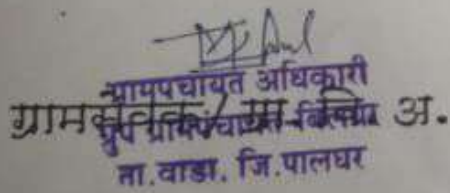 ग्रामपंचायत अधिकारी
ग्रामसेवक / ग्रा. वि. अ.
ग्रुप ग्रामपंचायत
ता. वाडा. जि. पालघर